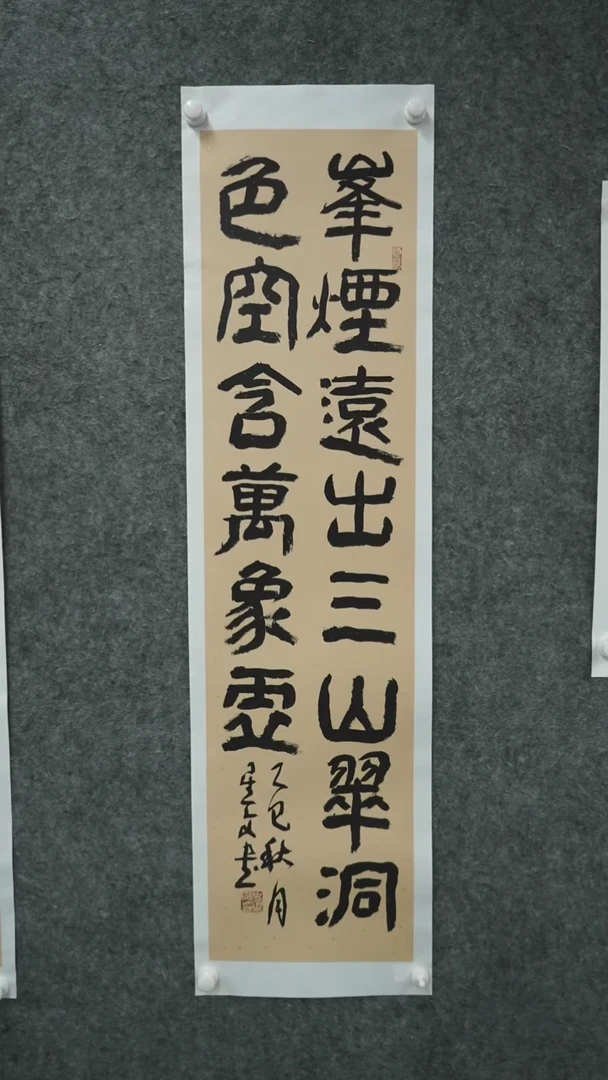 峯煙遠出三山翠洞
色空含萬象虛
乙巳秋月
書